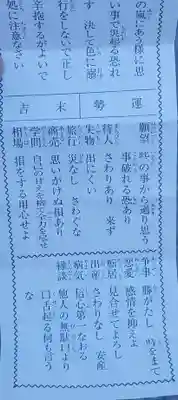 の嵐がある様に思
い事で災害の恐れ
す 決して色に溺
行をしないで正し
辛抱するがよいで
処に注意なさい
運勢 末吉
願望 他の事から通り思う
事破れる恐あり
待人 さわりあり 来ず
失物 出にくい
旅行 災なし さわぐな
商売 思いがけぬ損あり
学問 自己の甘えを棄て全力を尽せ
相場 損をする用心せよ
争事 勝がたし 時をまて
恋愛 感情を抑えよ
転居 見合せてよろし
出産 さわりなし 安産
病気 信心第一 なおる
縁談 他人の無駄口より
口舌起る何も言う
な